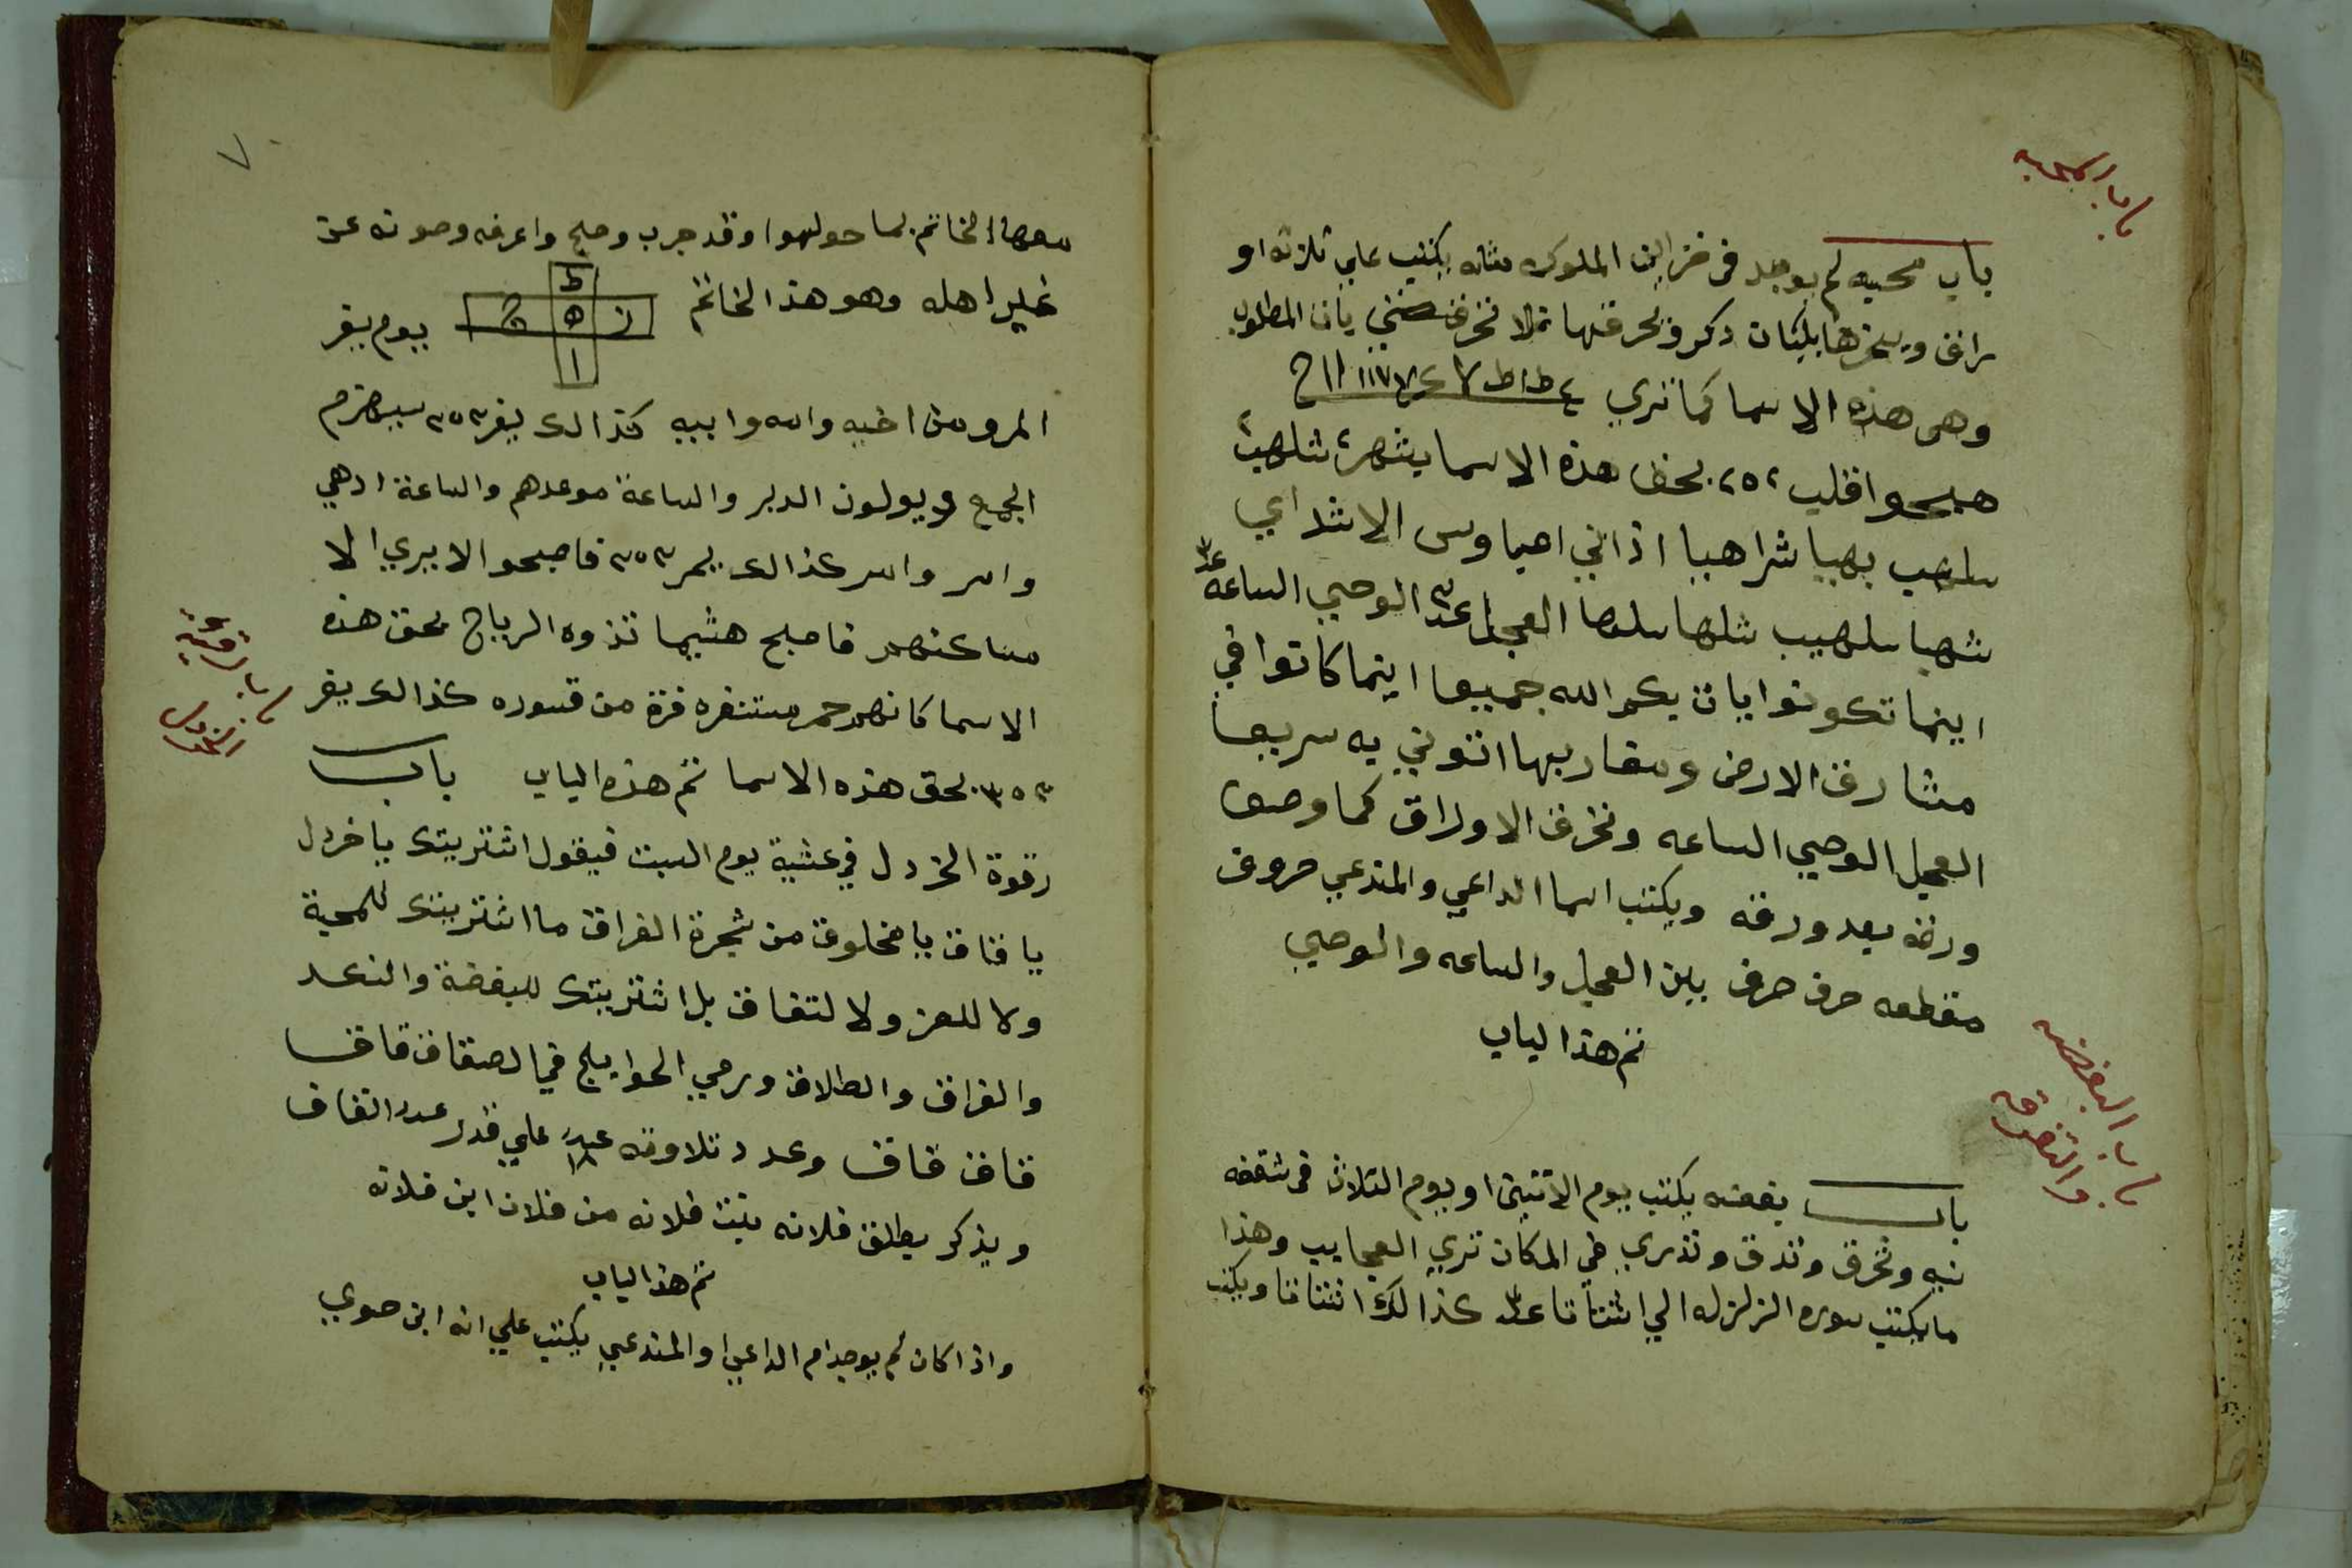 باب المحبه
باب محبه لم يوجد في خزاين الملوك مثله يكتب علي ثلاثه او
وهي هذه الاسما كما تري
بحق هذه الاسما
سلهب بهيا شراهيا اذاني اهيا
شهبا سلهيب شلها سلها العجل الوحي الساعه
اينما تكونوا يات بكم الله جميعا اينما كانوا في
مشارق الارض ومغاربها اتوني به سريعا
العجل الوحي الساعه وتخرق الاوراق كما وصف
ورقه بعد ورقه ويكتب اسما الداعي والمندعي حروف
مقطعه حرف حرف بين العجل والساعه والوحي
تم هذا الباب
باب البغضه
والتفرقه
باب بغضه يكتب يوم الاتنين او يوم التلات في شقفه
نيه وتحرق وتدق وتدري في المكان تري العجايب وهذا
ما يكتب سوره الزلزله الي اشتاتا كذالك اشتاتا ويكتب
٧
معها الخاتم بما حولهوا وقد جرب وصح واعرفه وصونه عن
غير اهله وهو هذا الخاتم
ط
ز ه ج
ا
يوم يفر
المرو من اخيه وامه وابيه كذالك يفر ٣٥٣ سيهزم
الجمع ويولون الدبر والساعة موعدهم والساعة ادهي
وامر وامر كذالك يمر ٣٥٣ فاصبحو الا يري الا
مساكنهم فاصبح هشيما تذوه الرياح بحق هذه
الاسما كانهم حمر مستنفره فرة من قسوره كذالك يفر
٣٥٣ بحق هذه الاسما تم هذه الباب باب
باب رقوة
الخردل
رقوة الخردل في عشية يوم السبت فيقول اشتريتك يا خردل
يا قاف يا مخلوق من شجرة الفراق ما اشتريتك للمحبة
ولا للعز ولا لتفاق بل اشتريتك للبغضة والنكد
والفراق والطلاق ورمي الحوايج في الصقاق قاف
قاف قاف وعدد تلاوته علي قدر عدد القاف
ويذكر يطلق فلانه بنت فلانه من فلان ابن فلانه
تم هذا الباب
واذا كان لم يوجد ام الداعي او المندعي يكتب علي انه ابن حوي